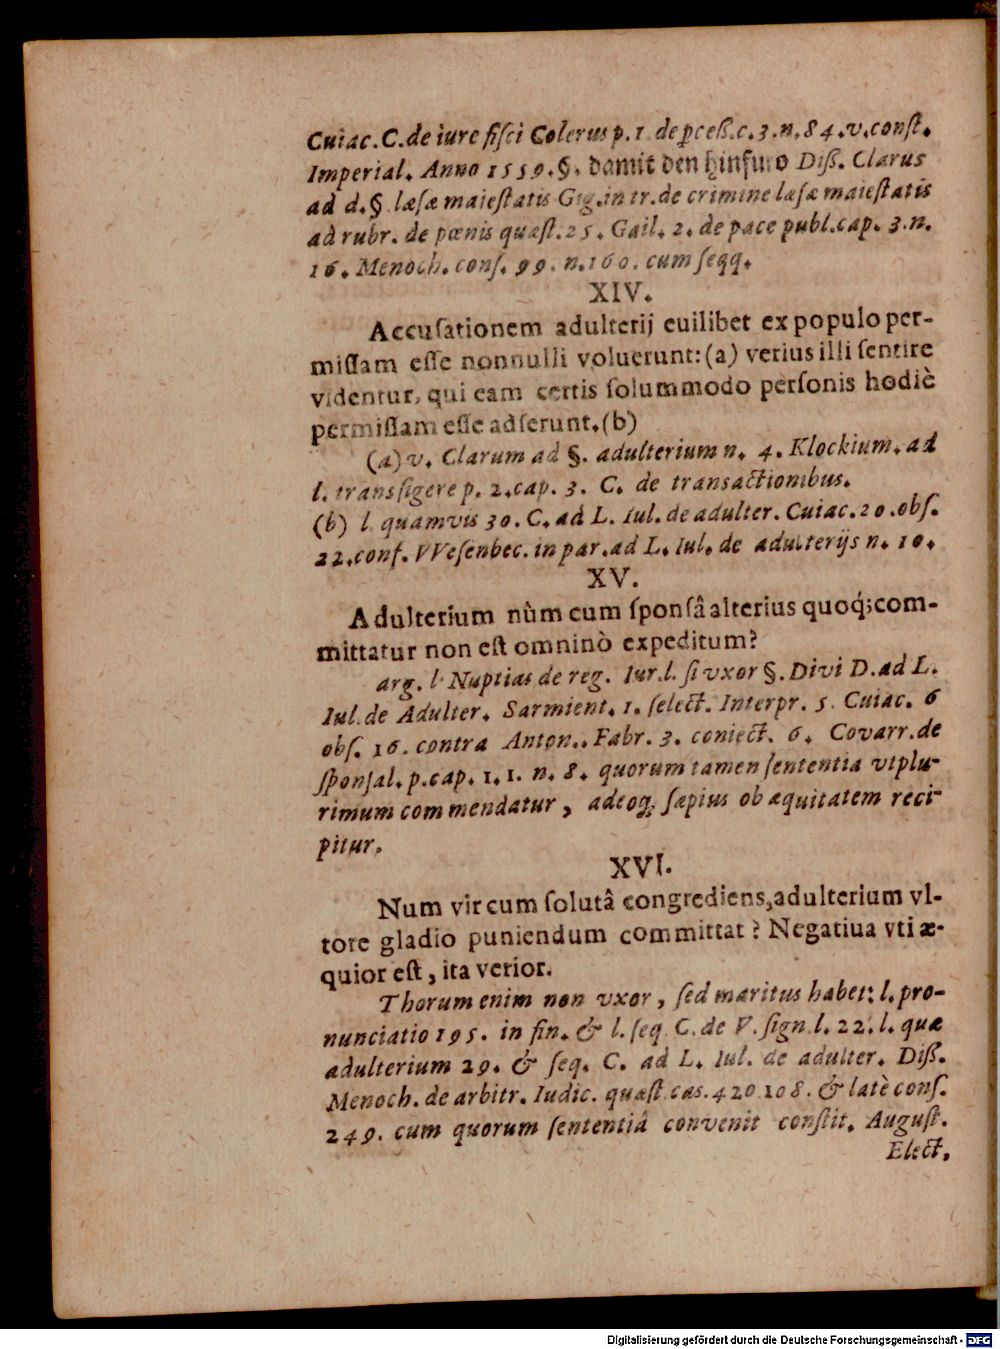 Cuiac. C. de iure fiſci Colerus p. 1. de ꝓceß. c. 3. n. 84. v. conſt.
Imperial. Anno 1559. §. damit den hinfuro Diß. Clarus
ad d. § læſæ maieſtatis Gig. in tr. de crimine læſæ maieſtatis
ad rubr. de pœnis quæſt. 25. Gail. 2. de pace publ. cap. 3. n.
16. Menoch. conſ. 99. n. 160. cum ſeqq.
XIV.
Accuſationem adulterij cuilibet ex populo per-
miſſam eſſe nonnulli voluerunt: (a) verius illi ſentire
videntur, qui eam certis ſolummodo perſonis hodiè
permiſſam eſſe adſerunt. (b)
(a) v. Clarum ad §. adulterium n. 4. Klockium. ad
l. transſigere p. 2. cap. 3. C. de transactionibus.
(b) l. quamvis 30. C. ad L. Iul. de adulter. Cuiac. 20. obſ.
22. conf. VVeſenbec. in par. ad L. Iul. de adulterijs n. 10.
XV.
Adulterium nùm cum ſponſâ alterius quoq́; com-
mittatur non eſt omninò expeditum?
arg. l. Nuptias de reg. Iur. l. ſi vxor §. Divi D. ad L.
Iul. de Adulter. Sarmient. 1. ſelect. Interpr. 5. Cuiac. 6
obſ. 16. contra Anton.. Fabr. 3. coniect. 6. Covarr. de
ſponſal. p. cap. 1. 1. n. 8. quorum tamen ſententia vtplu-
rimum commendatur, adeoq; ſæpius ob æquitatem reci-
pitur.
XVI.
Num vir cum ſolutâ congrediens, adulterium vl-
tore gladio puniendum committat? Negatiua vti æ-
quior eſt, ita verior.
Thorum enim non vxor, ſed maritus habet: l. pro-
nunciatio 195. in fin. & l. ſeq. C. de V. ſign. l. 22. l. quæ
adulterium 29. & ſeq. C. ad L. Iul. de adulter. Diß.
Menoch. de arbitr. Iudic. quæſt. cas. 420. 108. & latè conſ.
249. cum quorum ſententiâ convenit conſtit. Auguſt.
Elect.
Digitalisierung gefördert durch die Deutsche Forschungsgemeinschaft - DFG